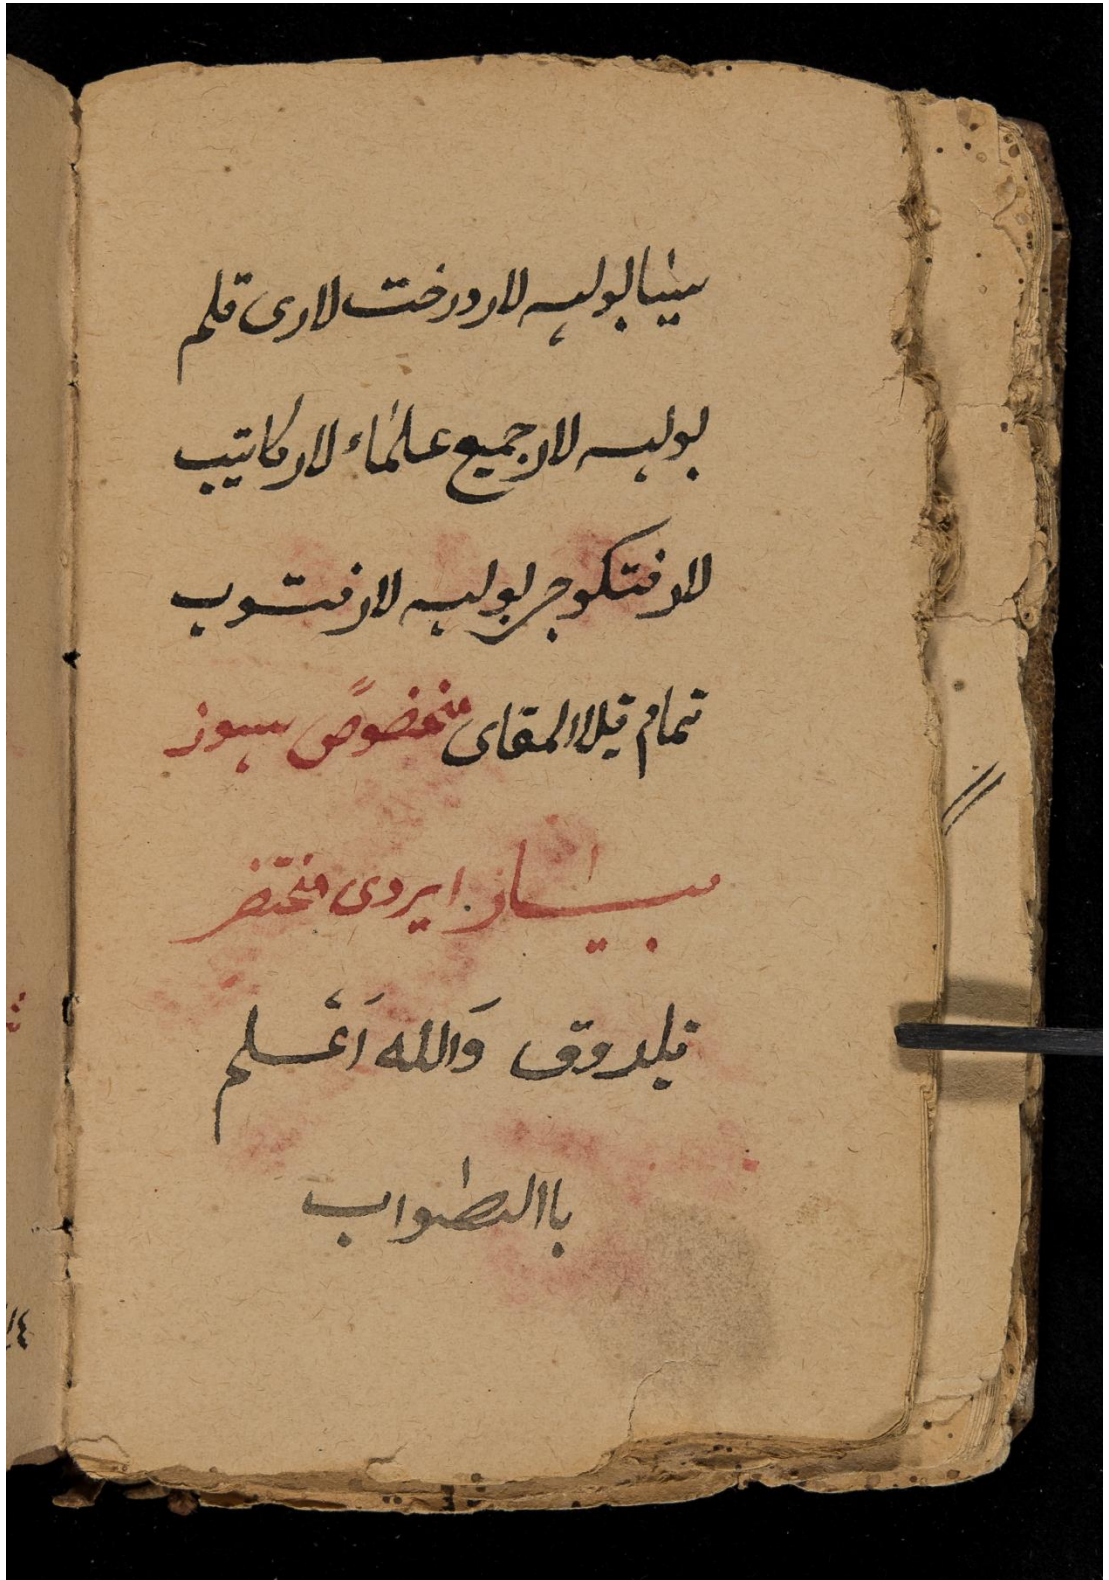 سیا بولسه لار درخت لاری قلم
بولسه لار جمیع علماء لار کاتیب
لار فتکوجی بولسه لار فتوب
تمام قیلا المقای مخصوص سوز
بسیار ایردی مختصر
قیلدوق وَالله اَعْلم
باالصواب